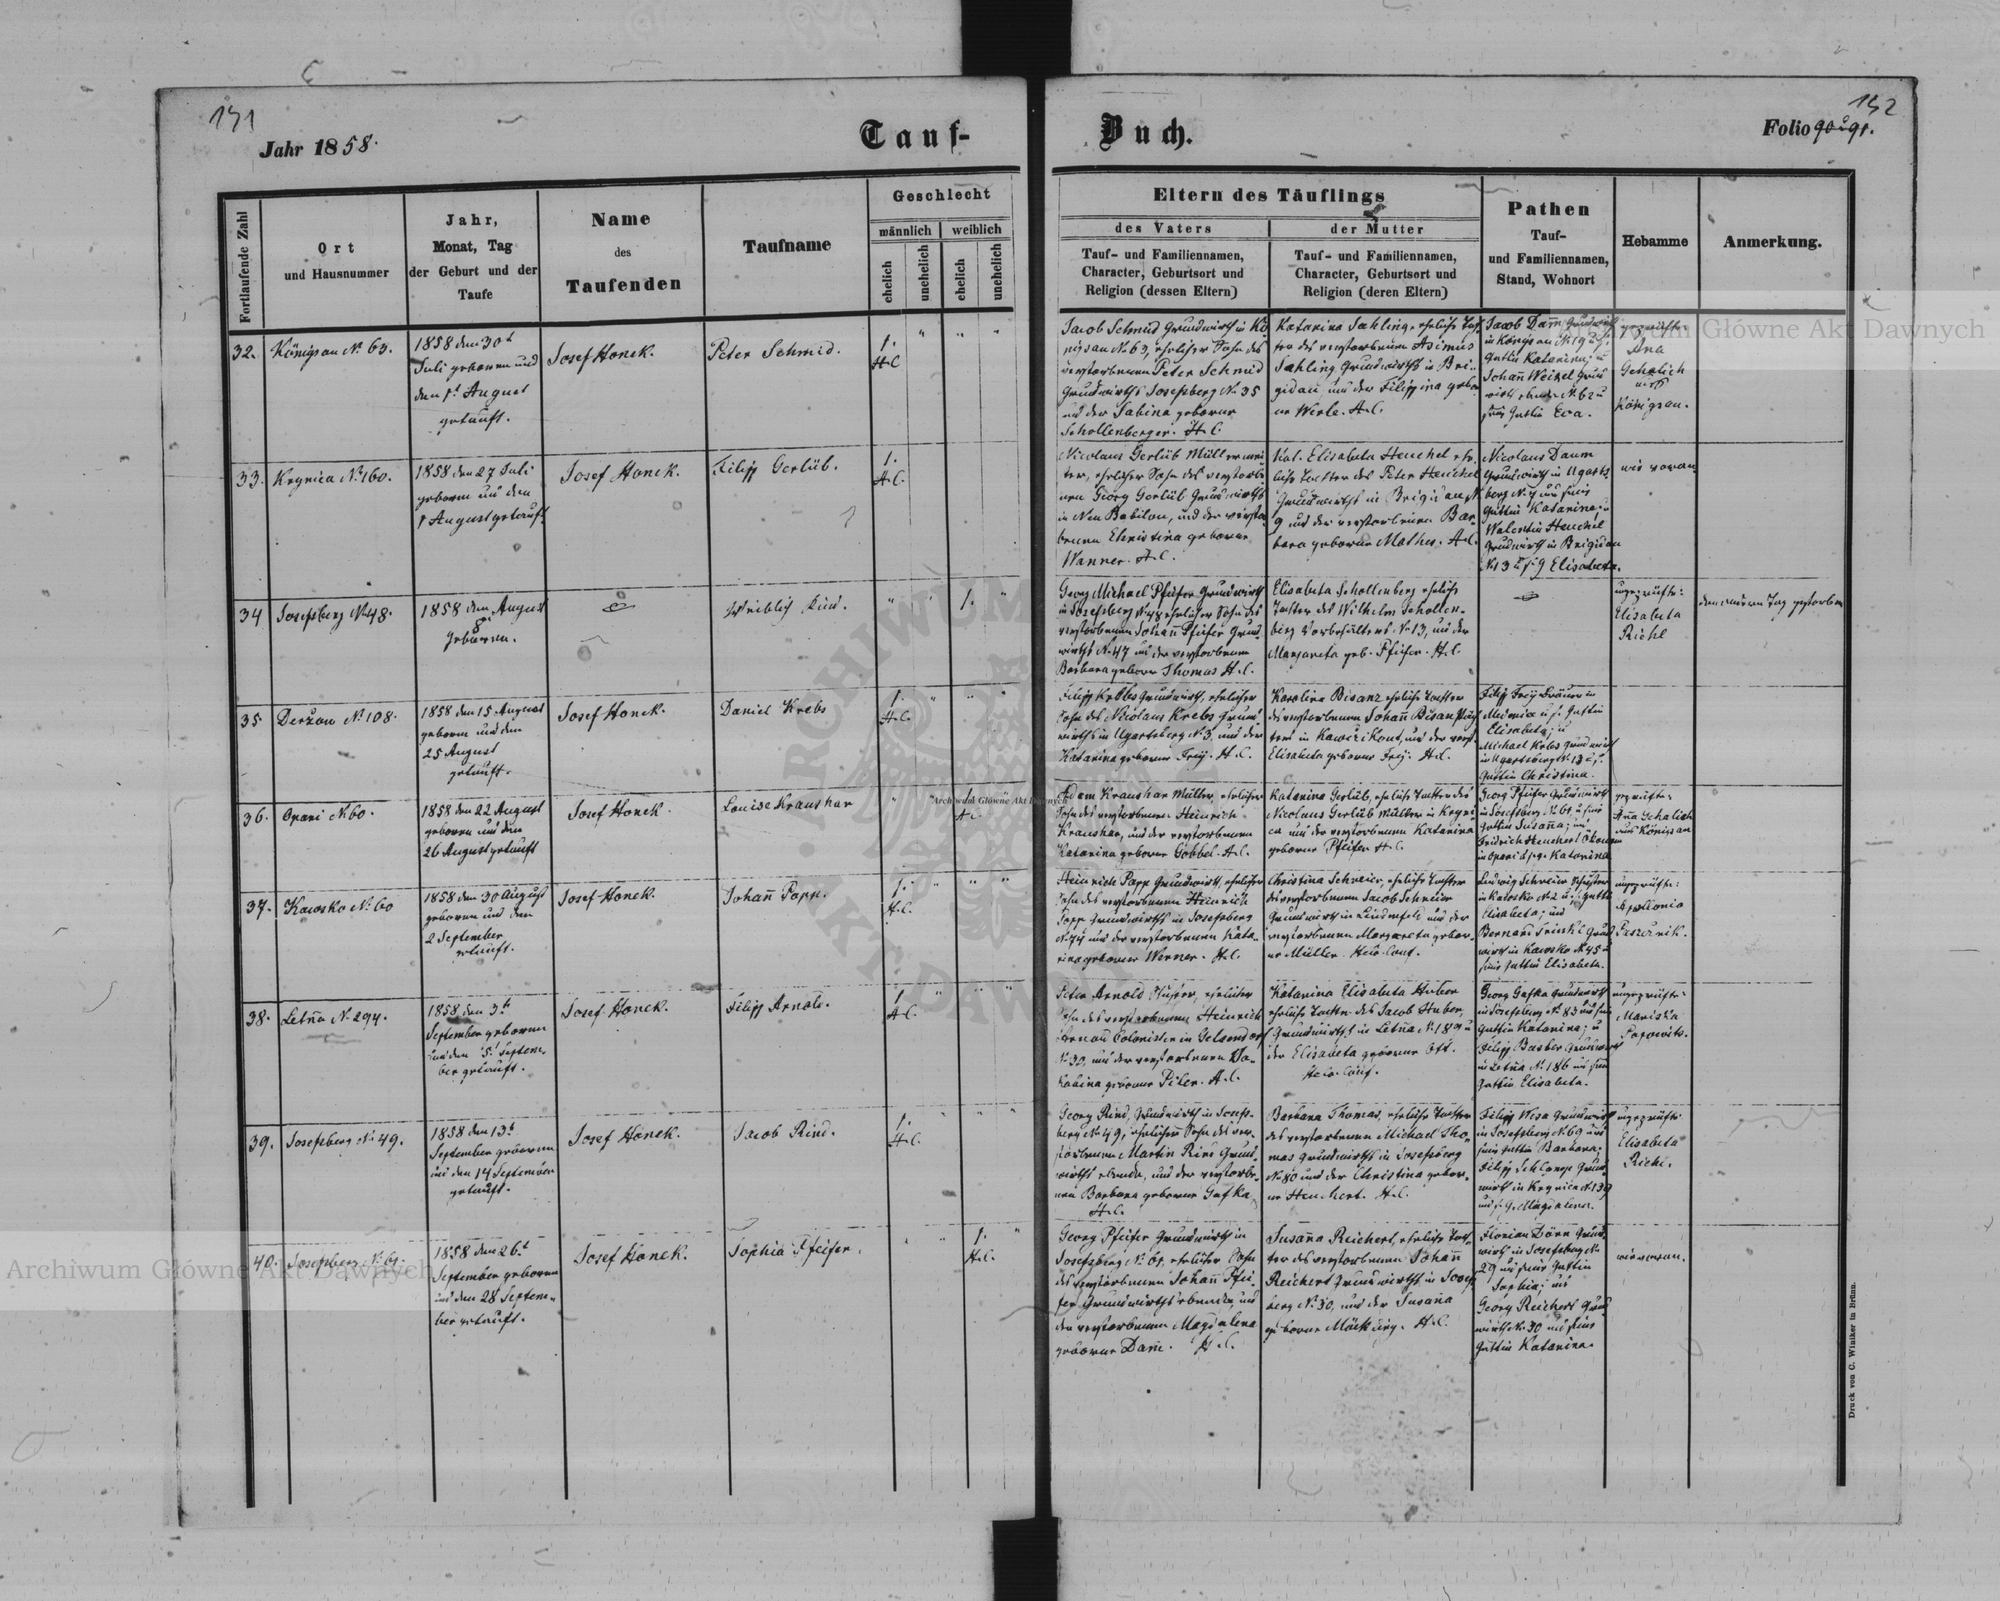 141
142
Jahr 1858.
Tauf-
Buch.
Folio 90 u 91.
Fortlaufende Zahl
Ort
und Hausnummer
Jahr,
Monat, Tag
der Geburt und der
Taufe
Name
des
Taufenden
Taufname
Geschlecht
männlich
weiblich
ehelich
unehelich
ehelich
unehelich
Eltern des Täuflings
des Vaters
der Mutter
Tauf- und Familiennamen,
Character, Geburtsort und
Religion (dessen Eltern)
Tauf- und Familiennamen,
Character, Geburtsort und
Religion (deren Eltern)
Pathen
Tauf-
und Familiennamen,
Stand, Wohnort
Hebamme
Anmerkung.
32.
Königsau № 63.
1858 den 30t
Juli geboren und
den 1t August
getauft.
Josef Honek.
Peter Schmid.
1.
H.C.
Jacob Schmid Grundwirth in Kö
nigsau № 63, ehelicher Sohn des
verstorbenen Peter Schmid
Grundwirths Josefsberg № 35
und der Sabina geborne
Schollenberger. H.C.
Katarina Sahling, eheliche Toch
ter des verstorbenen Asimus
Sahling Grundwirths in Bri-
gidau und der Filippina gebor
ne Werle. H.C.
Jacob Dam̄ Grundwirth
in Königsau № 19 u s.
Gattin Katarina; u
Johan̄ Weizel Grund
wirth ebenda № 62 u
seine Gattin Eva.
geprüfte:
Ana
Gehalich
aus
Königsau.
33.
Krynica № 160.
1858 den 27 Juli
geboren und den
1 August getauft
Josef Honek.
Filipp Gerlüb.
1.
H.C.
Nicolaus Gerlüb Müllermei
ster, ehelicher Sohn des verstorbe
nen Georg Gerlüb Grundwirths
in Neu Babilon, und der verstor
benen Christina geborne
Wanner. H.C.
Kat. Elisabeta Heuchel ehe
liche Tochter des Peter Heuchel
Grundwirths in Brigidau №
9 und der verstorbenen Bar-
bara geborne Mathes. H.C.
Nicolaus Daum
Grundwirth in Ugarts
berg № 7 und seine
Gattin Katarina; u
Walentin Heuchel
Grundwirth in Brigidau
№ 13 u s. g Elisabeta.
wie voran
34
Josefsberg № 48.
1858 den August
8
geboren.
Weiblich Kind.
1.
Georg Michael Pfeifer Grundwirth
in Josefsberg № 48 ehelicher Sohn des
verstorbenen Johan̄ Pfeifer Grund
wirths № 47 und der verstorbenen
Barbara geborne Thomas H.C.
Elisabeta Schollenberg eheliche
Tochter des Wilhelm Schollen-
berg Vorbehälters № 13, und der
Margareta geb. Pfeifer. H.C.
ungeprüfte:
Elisabeta
Riehl
den andern Tag gestorben
35.
Derżow № 108.
1858 den 15 August
geboren und den
25 August
getauft.
Josef Honek.
Daniel Krebs
1.
H.C.
Filipp Krebs Grundwirth, ehelicher
Sohn des Nicolaus Krebs Grund
wirths in Ugartsberg № 3, und der
Katarina geborne Frey. H.C.
Karolina Bisanz eheliche Tochter
des verstorbenen Johan̄ Bisanz
und der verst.
Elisabeta geborne Frey. H.C.
Filipp Frey Bräuer in
Medenice u s. Gattin
Elisabeta; u
Michael Krebs Grundwirth
in Ugartsberg № 13 u s.
Gattin Christina.
36.
Opari № 60.
1858 den 22 August
geboren und den
26 August getauft
Josef Honek.
Louise Kraushar
1.
H.C.
Adam Kraushar Müller, ehelicher
Sohn des verstorbenen Heinrich
Kraushar, und der verstorbenen
Katarina geborne Göbbel. H.C.
Katarina Gerlüb, eheliche Tochter des
Nicolaus Gerlüb Müller in Kryni-
ca und der verstorbenen Katarina
geborne Pfeifer H.C.
Georg Pfeifer Grundwirth
in Josefsberg № 61 u seine
Gattin Susan̄a; und
Fridrich Heuchert Ökonom
in Opari d. s. g. Katarina
geprüfte:
Ana Gehalich
aus Königsau
37.
Kawsko № 60
1858 den 30 August
geboren und den
2 September
getauft.
Josef Honek.
Johan̄ Papp.
1.
H.C.
Heinrich Papp Grundwirth, ehelicher
Sohn des verstorbenen Heinrich
Papp Grundwirths in Josefsberg
№ 74 und der verstorbenen Kata-
rina geborne Werner. H.C.
Christina Schreier, eheliche Tochter
des verstorbenen Jacob Schreier
Grundwirth in Lindenfeld und der
verstorbenen Margareta gebor-
ne Müller. Helv. Conf.
Ludwig Schreier Schuster
Elisabeta; und
wirth in Kawsko № 45 u
seine Gattin Elisabeta.
ungeprüfte:
Apolonia
38.
Letn̄a № 294.
1858 den 3t
September geboren
und den 5t Septem-
ber getauft.
Josef Honek.
Filipp Arnold.
1
H.C.
Peter Arnold ehelicher
Sohn des verstorbenen Heinrich
Arnold Colonisten in Gelsendorf
№ 30, und der verstorbenen Ja-
kobina geborne Piler. H.C.
Katarina Elisabeta Huber
eheliche Tochter des Jacob Huber,
Grundwirth in Letn̄a № 189 u
der Elisabeta geborne Ott.
Helv. Conf.
Georg Gafka Grundwirth
in Josefsberg № 83 und seine
Gattin Katarina; u
Filipp Basler Grundwirth
in Letn̄a № 186 und seine
Gattin Elisabeta.
ungeprüfte:
Mariska
Popowits.
39.
Josefsberg № 49.
1858 den 13t
September geboren
und den 14 September
getauft.
Josef Honek.
Jacob Rind.
1.
H.C.
Georg Rind, Grundwirth in Josefs-
berg № 49, ehelicher Sohn des ver-
storbenen Martin Rind Grund
wirths ebenda, und der verstorbe-
nen Barbara geborne Gafka.
H.C.
Barbara Thomas, eheliche Tochter
des verstorbenen Michael Tho-
mas Grundwirths in Josefsberg
№ 80 und der Christina gebor-
ne Heuchert. H.C.
Filipp Wisa Grundwirth
in Josefsberg № 69 und
seine Gattin Barbara;
Filipp Schlamp Grund
wirth in Krynica № 139
und s. g. Magdalena.
ungeprüfte:
Elisabeta
Riehl.
40.
Josefsberg № 61.
1858 den 26t
September geboren
und den 28 Septem-
ber getauft.
Josef Honek.
Sophia Pfeifer.
1.
H.C.
Georg Pfeifer Grundwirth in
Josefsberg № 61, ehelicher Sohn
des verstorbenen Johan̄ Pfei-
fer Grundwirths ebenda, und
der verstorbenen Magdalena
geborne Dam̄. H.C.
Susan̄a Reichert, eheliche Toch
ter des verstorbenen Johan̄
Reichert Grundwirths in Josefs
berg № 30, und der Susan̄a
geborne Mäcking. H.C.
Florian Dörn Grund
wirth in Josefsberg №
29 und seine Gattin
Sophia; und
Georg Reichert Grund
wirth № 30 und seine
Gattin Katarina.
wie voran.
Druck von C. Winiker in Brünn.
Archiwum Główne Akt Dawnych
Archiwum Główne Akt Dawnych
Archiwum Główne Akt Dawnych
ARCHIWUM
AKT DAWNYCH